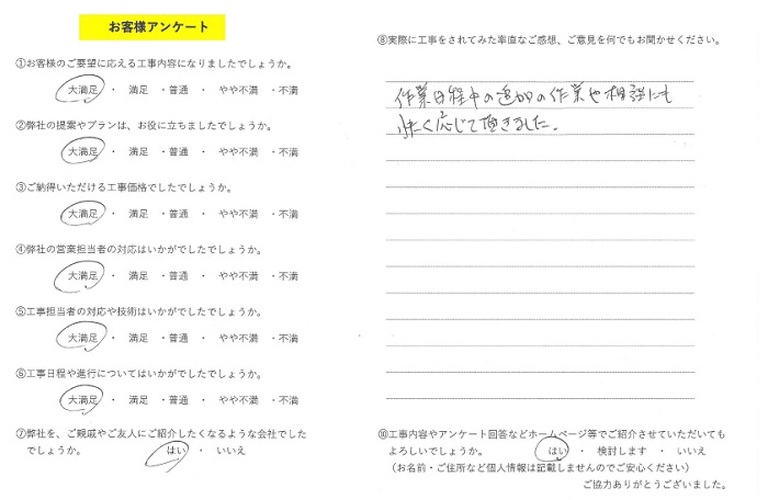 お客様アンケート
①お客様のご要望に応える工事内容になりましたでしょうか。
大満足 ・ 満足 ・普通 ・ やや不満 ・不満
②弊社の提案やプランは、お役に立ちましたでしょうか。
大満足 ・ 満足 ・普通 ・ やや不満 ・不満
③ご納得いただける工事価格でしたでしょうか。
大満足 ・ 満足 ・普通 ・ やや不満 ・不満
④弊社の営業担当者の対応はいかがでしたでしょうか。
大満足 ・ 満足 ・普通 ・ やや不満 ・不満
⑤工事担当者の対応や技術はいかがでしたでしょうか。
大満足 ・ 満足 ・普通 ・ やや不満 ・不満
⑥工事日程や進行についてはいかがでしたでしょうか。
大満足 ・ 満足 ・普通 ・ やや不満 ・不満
⑦弊社を、ご親戚やご友人にご紹介したくなるような会社でした
でしょうか。 はい ・ いいえ
⑧実際に工事をされてみた率直なご感想、ご意見を何でもお聞かせください。
作業日程中の追加の作業や相談にも
快く応じて頂きました。
⑩工事内容やアンケート回答などホームページ等でご紹介させていただいても
よろしいでしょうか。 はい ・ 検討します ・ いいえ
（お名前・ご住所など個人情報は記載しませんのでご安心ください）
ご協力ありがとうございました。